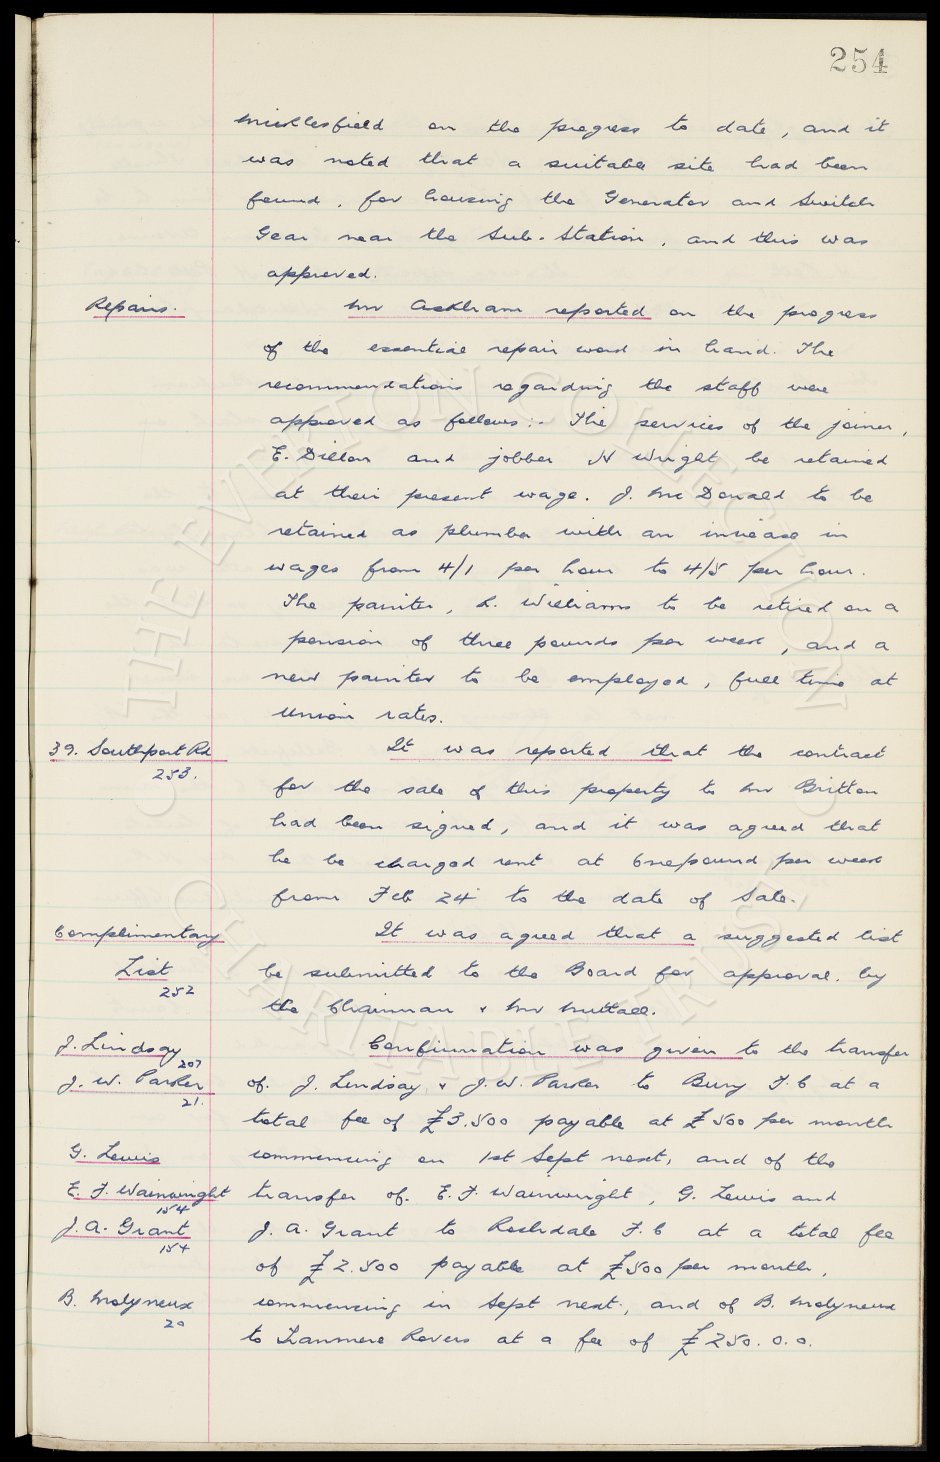 254
Micklesfield on the progress to date, and it
was noted that a suitable site had been
found, for housing the Generator and Switch
Gear near the Sub-Station, and this was
approved.
Repairs.
Mr Askham reported on the progress
of the essential repair work in hand. The
recommendations regarding the staff were
approved as follows:- The services of the joiner,
E. Dillon and jobber N Wright be retained
at their present wage. J. Mc Donald to be
retained as plumber with an increase in
wages from 4/1 per hour to 4/5 per hour.
The painter, L. Williams to be retired on a
pension of three pounds per week, and a
new painter to be employed, full time at
Union rates.
39. Southport Rd
253.
It was reported that the contract
for the sale of this property to Mr Britton
had been signed, and it was agreed that
he be charged rent at one pound per week
from Feb 24 to the date of Sale.
Complimentary
List
252
It was agreed that a suggested list
be submitted to the Board for approval. by
the Chairman & Mr Nuttall.
J. Lindsay
207
J. W. Parker
21.
Confirmation was given to the transfer
of. J. Lindsay & J. W. Parker to Bury F.C at a
total fee of £3.500 payable at £500 per month
commencing on 1st Sept next, and of the
G. Lewis
E. F. Wainwright
154
transfer of. E. F. Wainwright, G. Lewis and
J. A. Grant
154
J. A. Grant to Rochdale F.C at a total fee
of £2.500 payable at £500 per month,
B. Molyneux
20
commencing in Sept next., and of B. Molyneux
to Tranmere Rovers at a fee of £250.0.0.
THE EVERTON COLLECTION
CHARITABLE TRUST